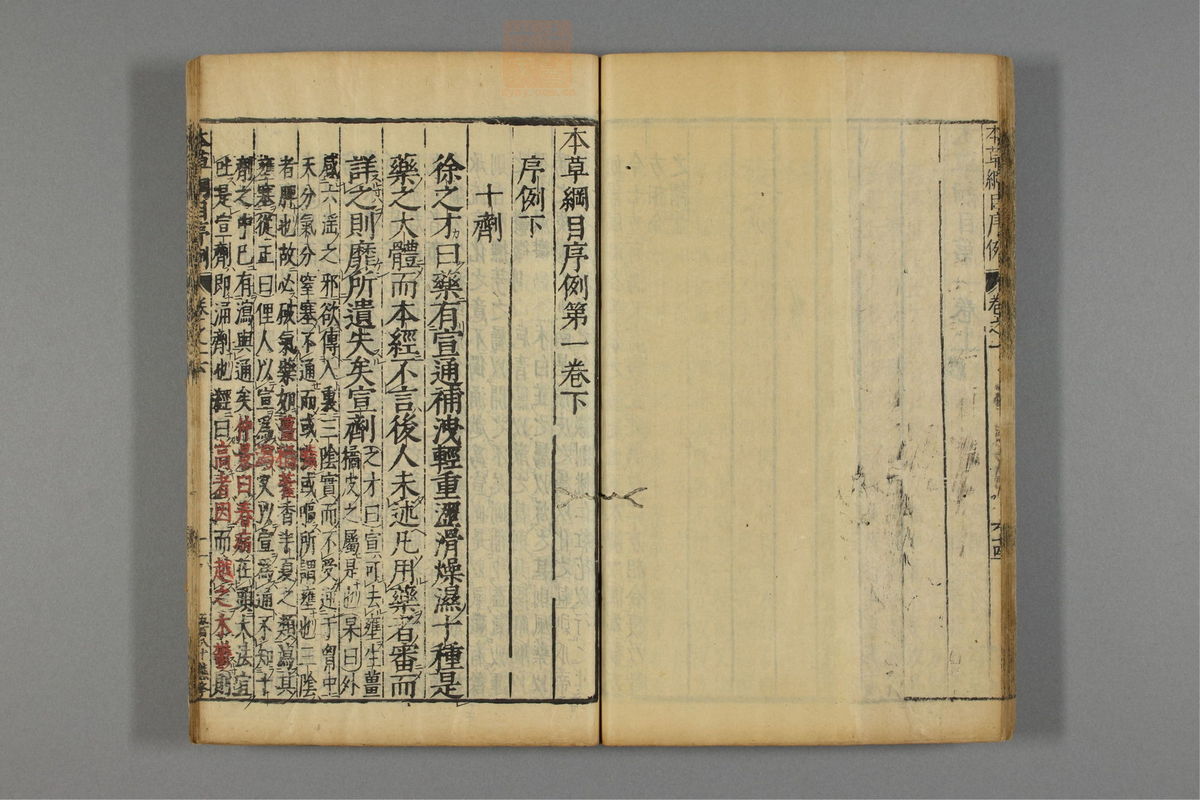 本草綱目序例 卷之一
本草綱目序例第一卷下
序例下
十劑
徐之才曰藥有宣通補洩輕重澀滑燥濕十種是
藥之大體而本經不言後人未述凡用藥者審而
詳之則靡所遺失矣宣劑之才曰宣可去壅生薑
橘皮之屬是也杲曰外
感六淫之邪欲傳入裏三陰實而不受逆于胃中
天分氣分窒塞不通而或噦或嘔所謂壅也三陰
者脾也故必破氣藥如薑橘藿香半夏之類瀉其
壅塞從正曰俚人以宣爲瀉又以宣爲通不知十
劑之中已有瀉與通矣仲景曰春病在頭大法宜
吐是宣劑即涌劑也經曰高者因而越之木鬱則
本草綱目序例 卷之一